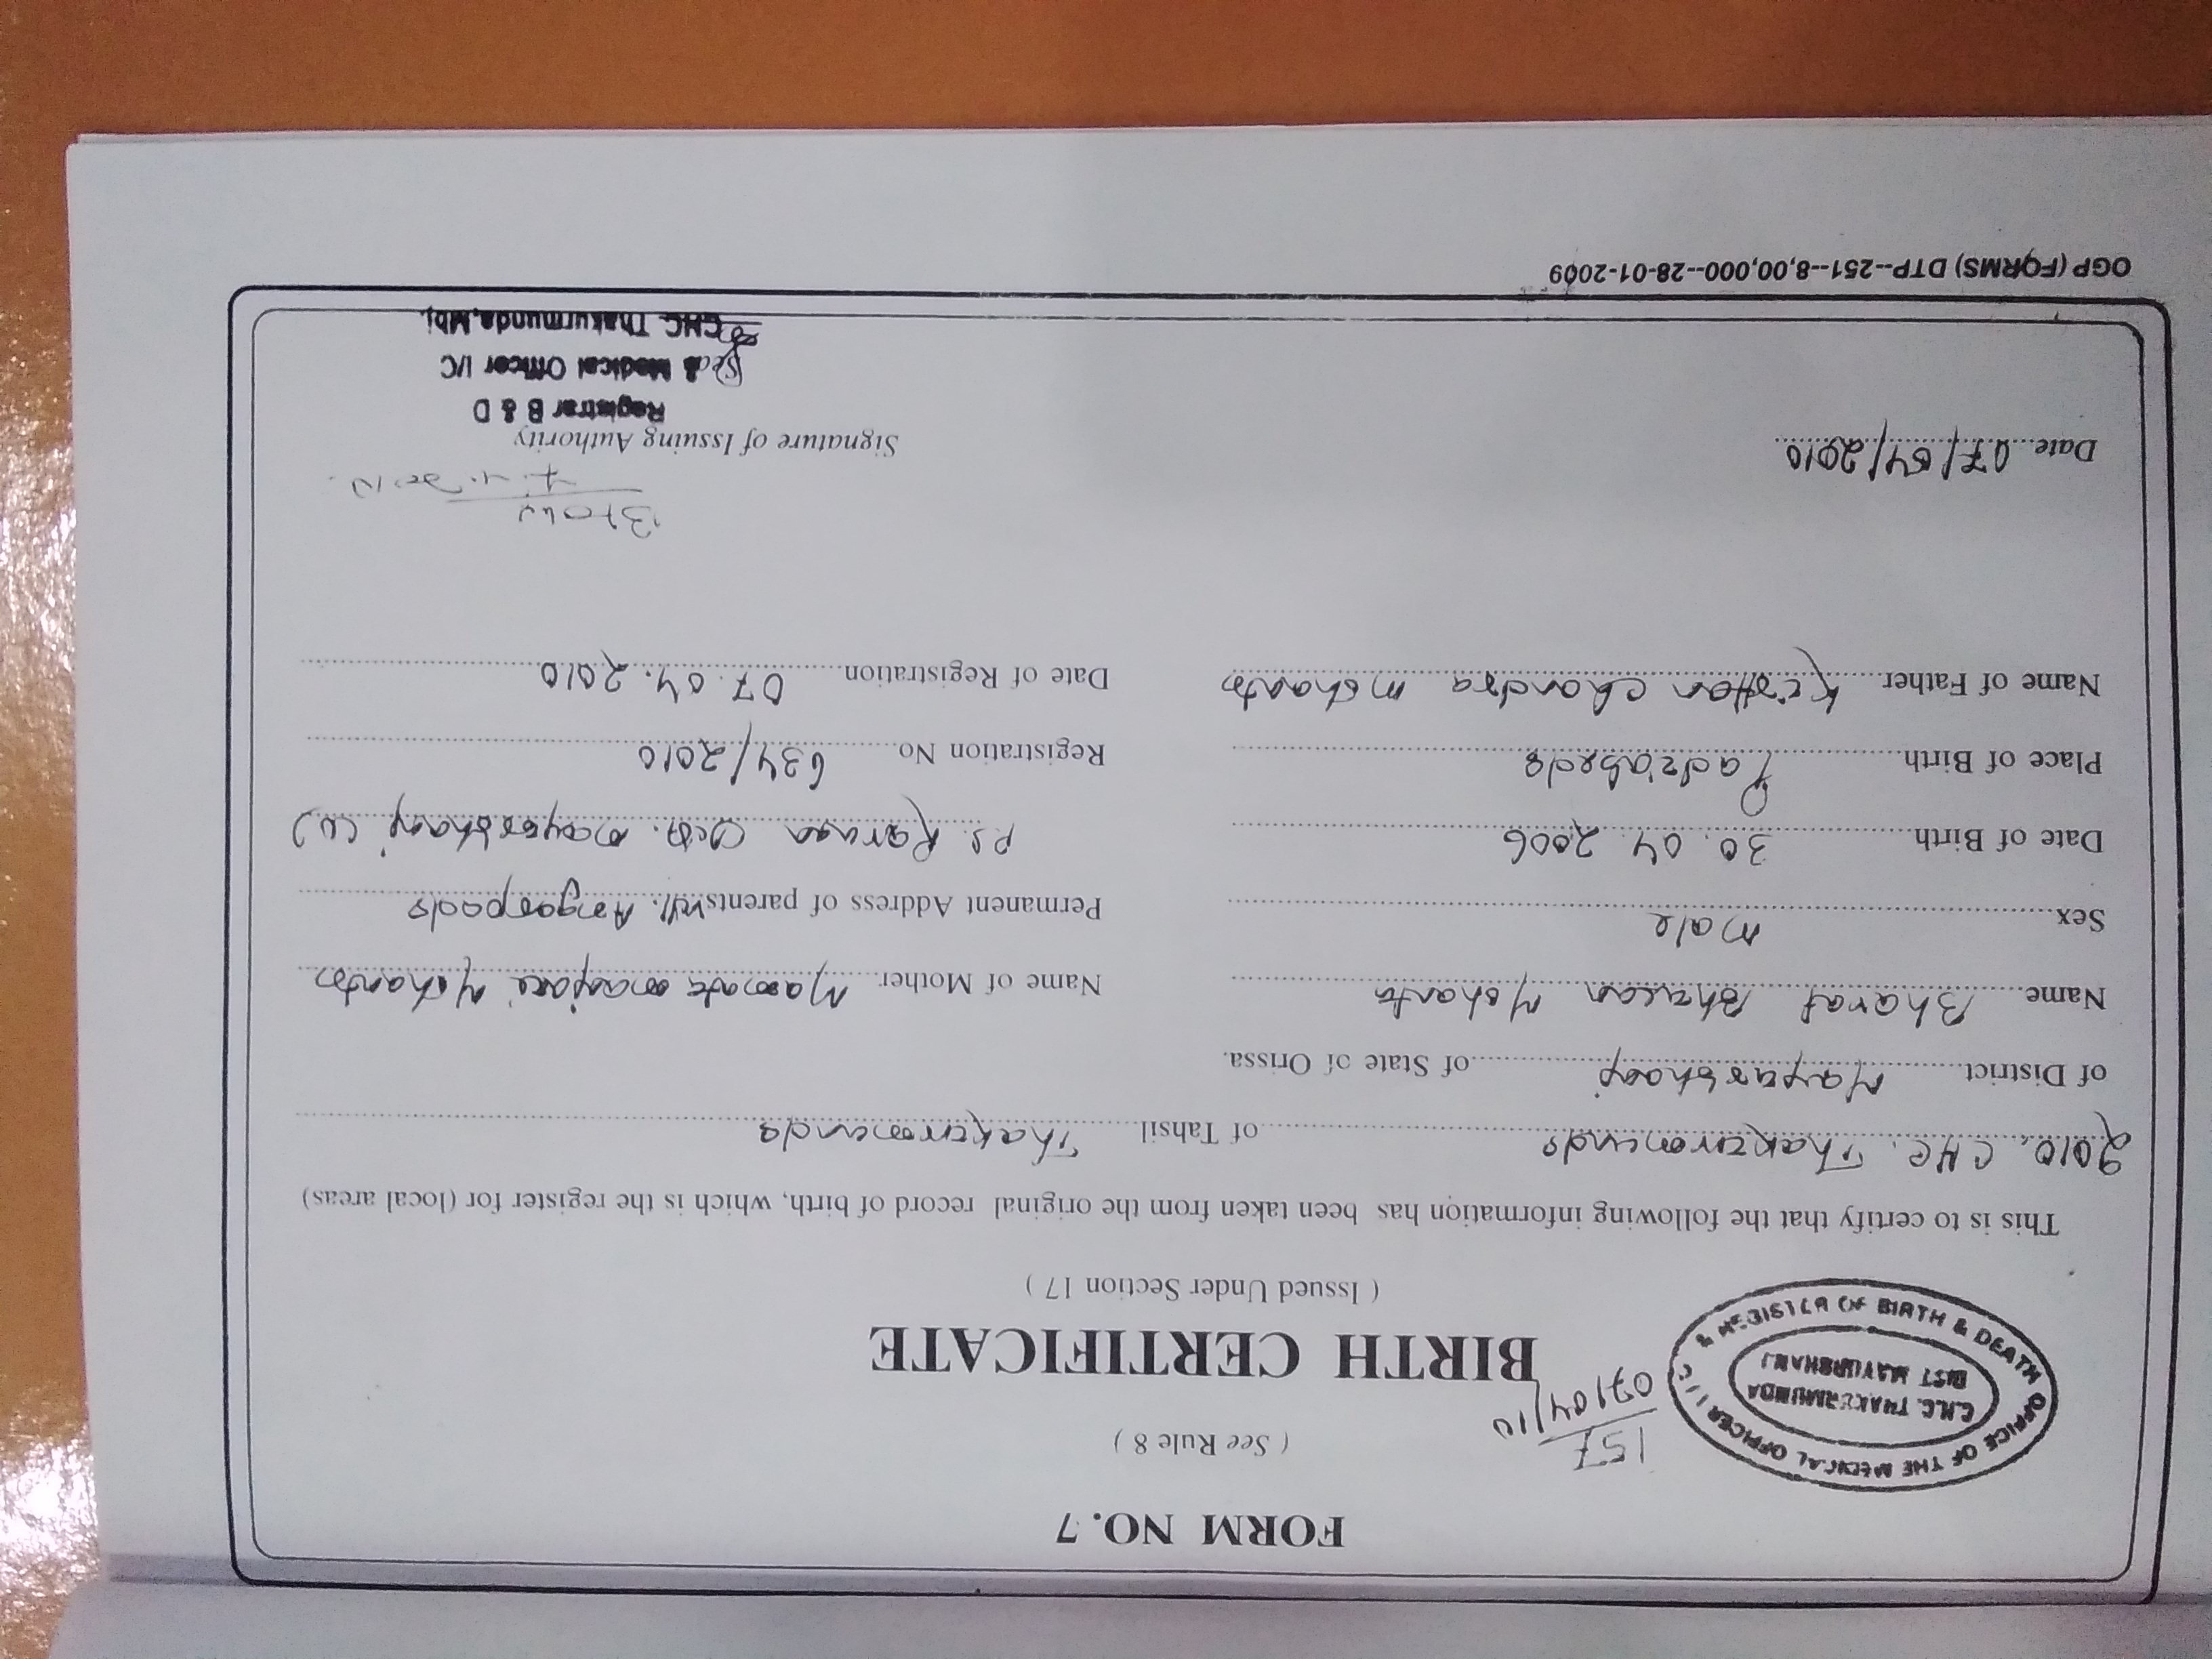 FORM NO. 7
( See Rule 8 )
157
07/04/10
OFFICE OF THE MEDICAL OFFICER I/C & REGISTER OF BIRTH & DEATH
C.H.C. THAKURMUNDA
DIST MAYURBHANJ
BIRTH CERTIFICATE
( Issued Under Section 17 )
This is to certify that the following information has been taken from the original record of birth, which is the register for (local areas)
2010, CHC. Thakurmunda of Tahsil Thakurmunda
of District Mayurbhanj of State of Orissa.
Name Bharat Bhusan Mohanta
Name of Mother Mamata manjari Mohanta
Sex male
Permanent Address of parents vill. Angarpada
Date of Birth 30.04.2006
P.S. Karanjia Dist. mayurbhanj
Place of Birth Padiabeda
Registration No 634/2010
Name of Father chandra mohanta
Date of Registration 07.04.2010
7.4.2010
Date 07/04/2010
Signature of Issuing Authority
Registrar B & D
Medical Officer I/C
CHC Thakurmunda, Mbj.
OGP (FORMS) DTP--251--8,00,000--28-01-2009